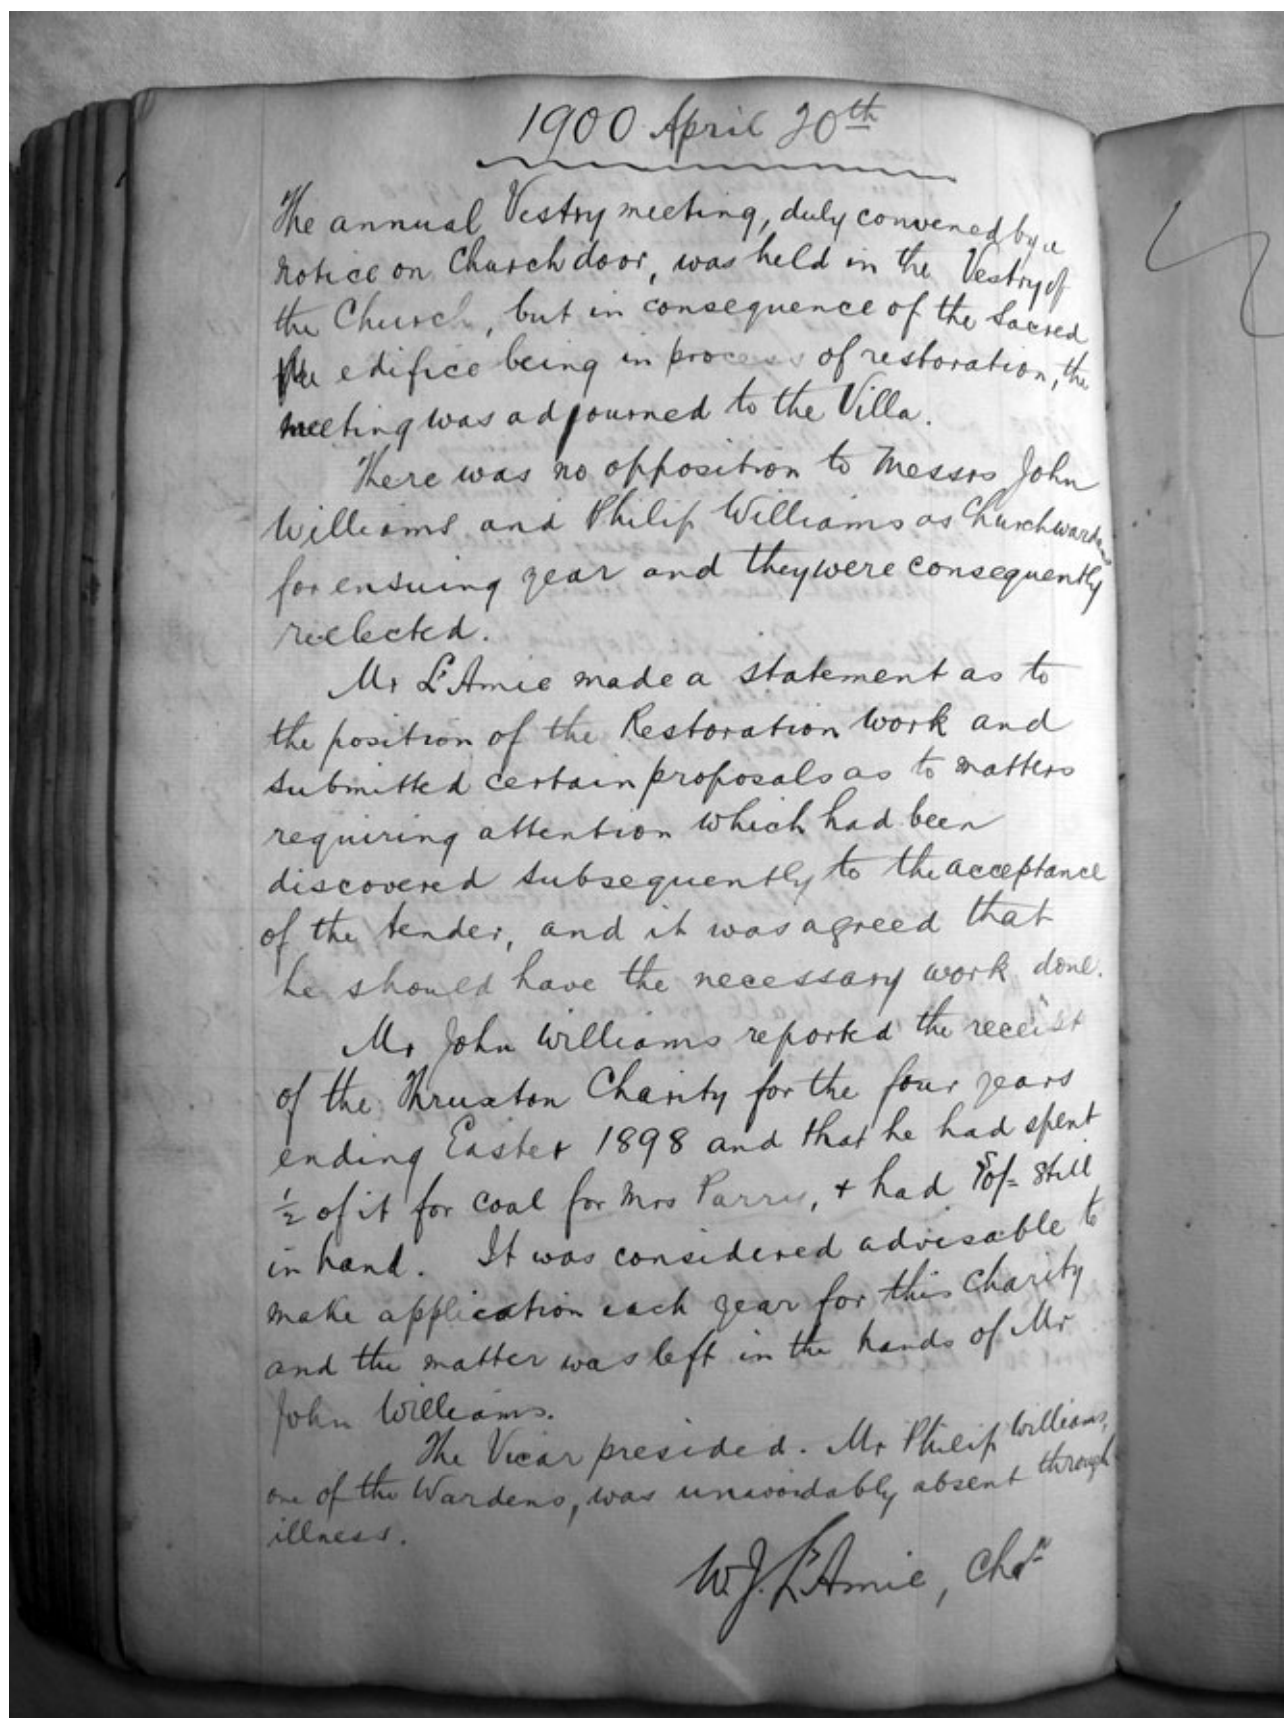 1900 April 20th
The annual Vestry meeting, duly convened by a
notice on Church door, was held in the Vestry of
the Church, but in consequence of the Sacred
edifice being in process of restoration, the
meeting was adjourned to the Villa.
There was no opposition to Messrs John
Williams and Philip Williams as Churchwardens
for ensuing year and they were consequently
reelected.
Mr L'Amie made a statement as to
the position of the Restoration work and
submitted certain proposals as to matters
requiring attention which had been
discovered subsequently to the acceptance
of the tender, and it was agreed that
he should have the necessary work done.
Mr John Williams reported the receipt
of the Thruxton Charity for the four years
ending Easter 1898 and that he had spent
½ of it for coal for Mrs Parry, + had still
in hand. It was considered advisable to
make application each year for this Charity
and the matter was left in the hands of Mr
John Williams.
The Vicar presided. Mr Philip Williams,
one of the Wardens, was unavoidably absent through
illness.
W. J. L'Amie, Chn